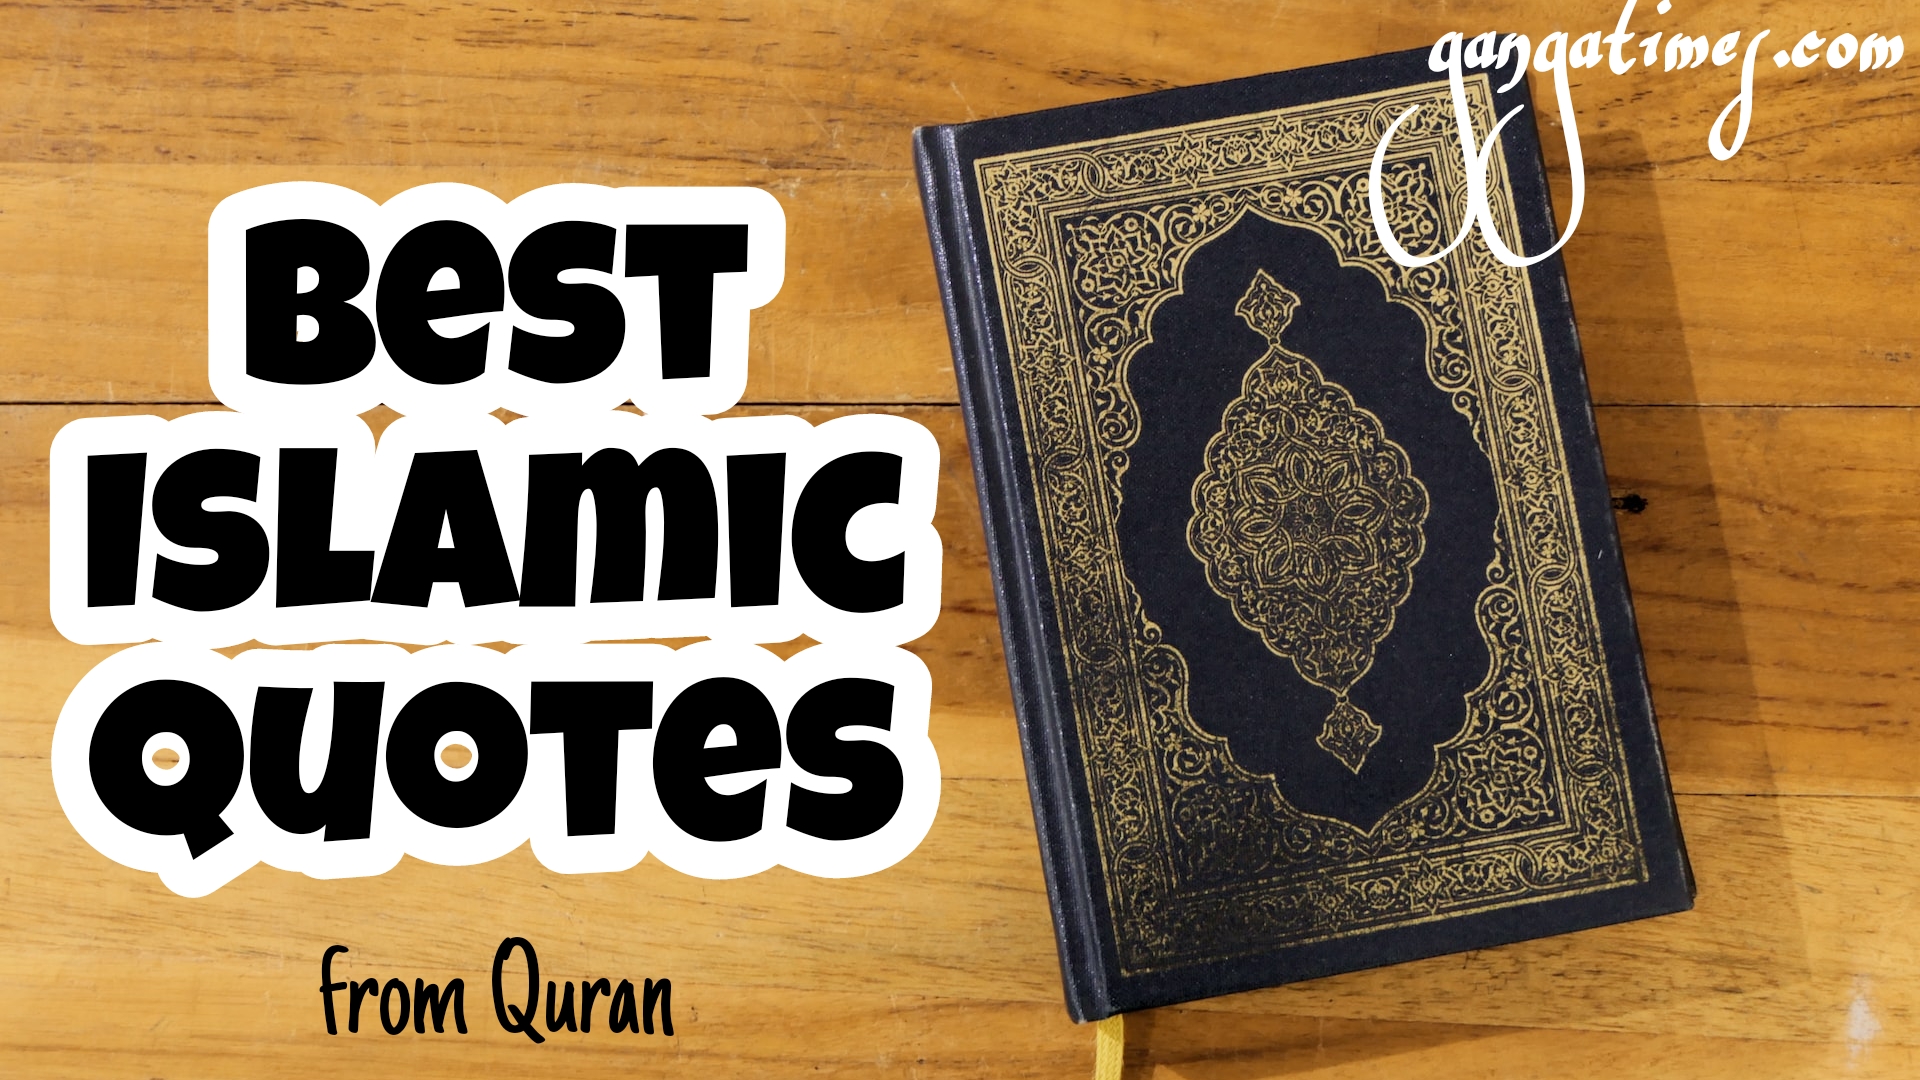 gangatimes.com
BEST
ISLAMIC
QUOTES
from Quran